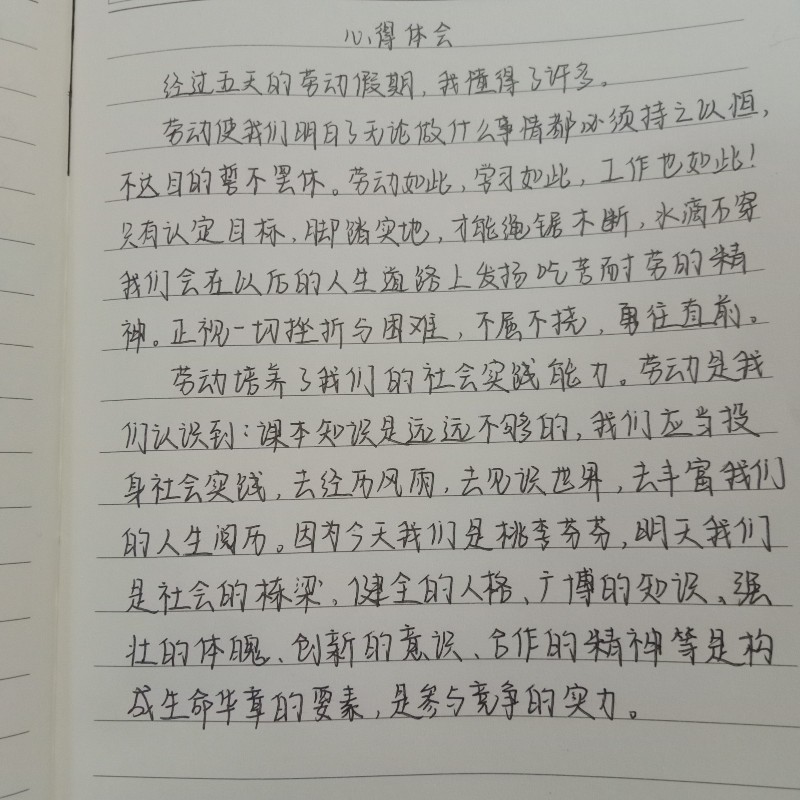 心得体会
经过五天的劳动假期，我懂得了许多。
劳动使我们明白了无论做什么事情都必须持之以恒，
不达目的誓不罢休。劳动如此，学习如此，工作也如此！
只有认定目标，脚踏实地，才能绳锯木断，水滴石穿
我们会在以后的人生道路上发扬吃苦耐劳的精
神。正视一切挫折与困难，不屈不挠，勇往直前。
劳动培养了我们的社会实践能力。劳动是我
们认识到：课本知识是远远不够的，我们应当投
身社会实践，去经历风雨，去见识世界，去丰富我们
的人生阅历。因为今天我们是桃李芬芬，明天我们
是社会的栋梁，健全的人格、广博的知识、强
壮的体魄、创新的意识、合作的精神等是构
成生命华章的要素，是参与竞争的实力。